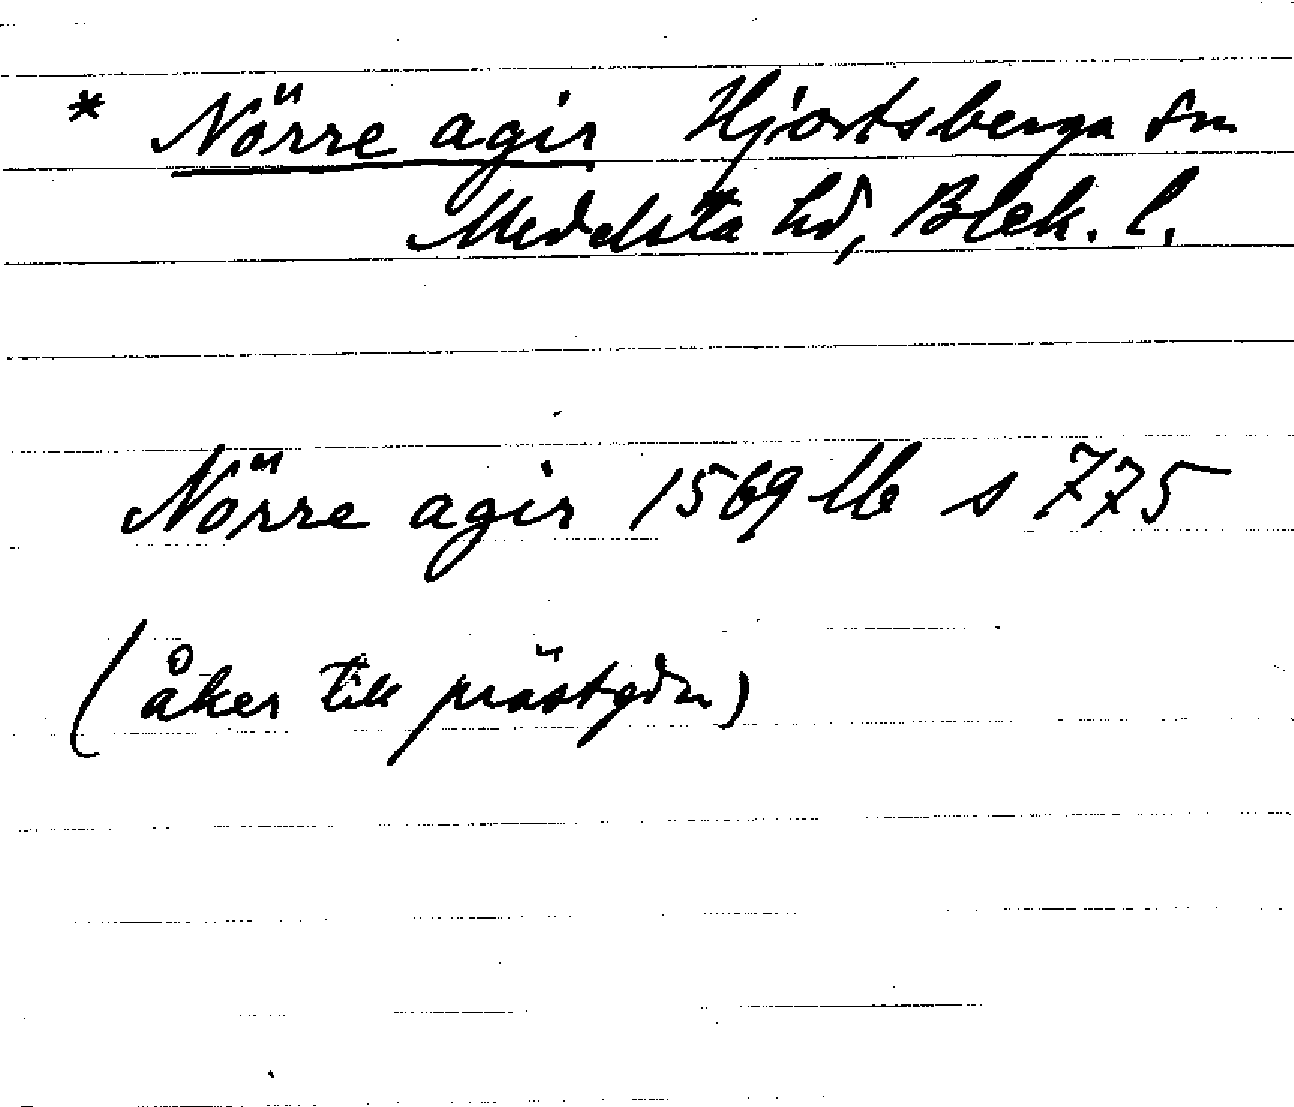 * Nörre agir Hjortsberga sn
Medelsta hd, Blek. l.
Nörre agir 1569 lb s 775
(åker till prästgdn)